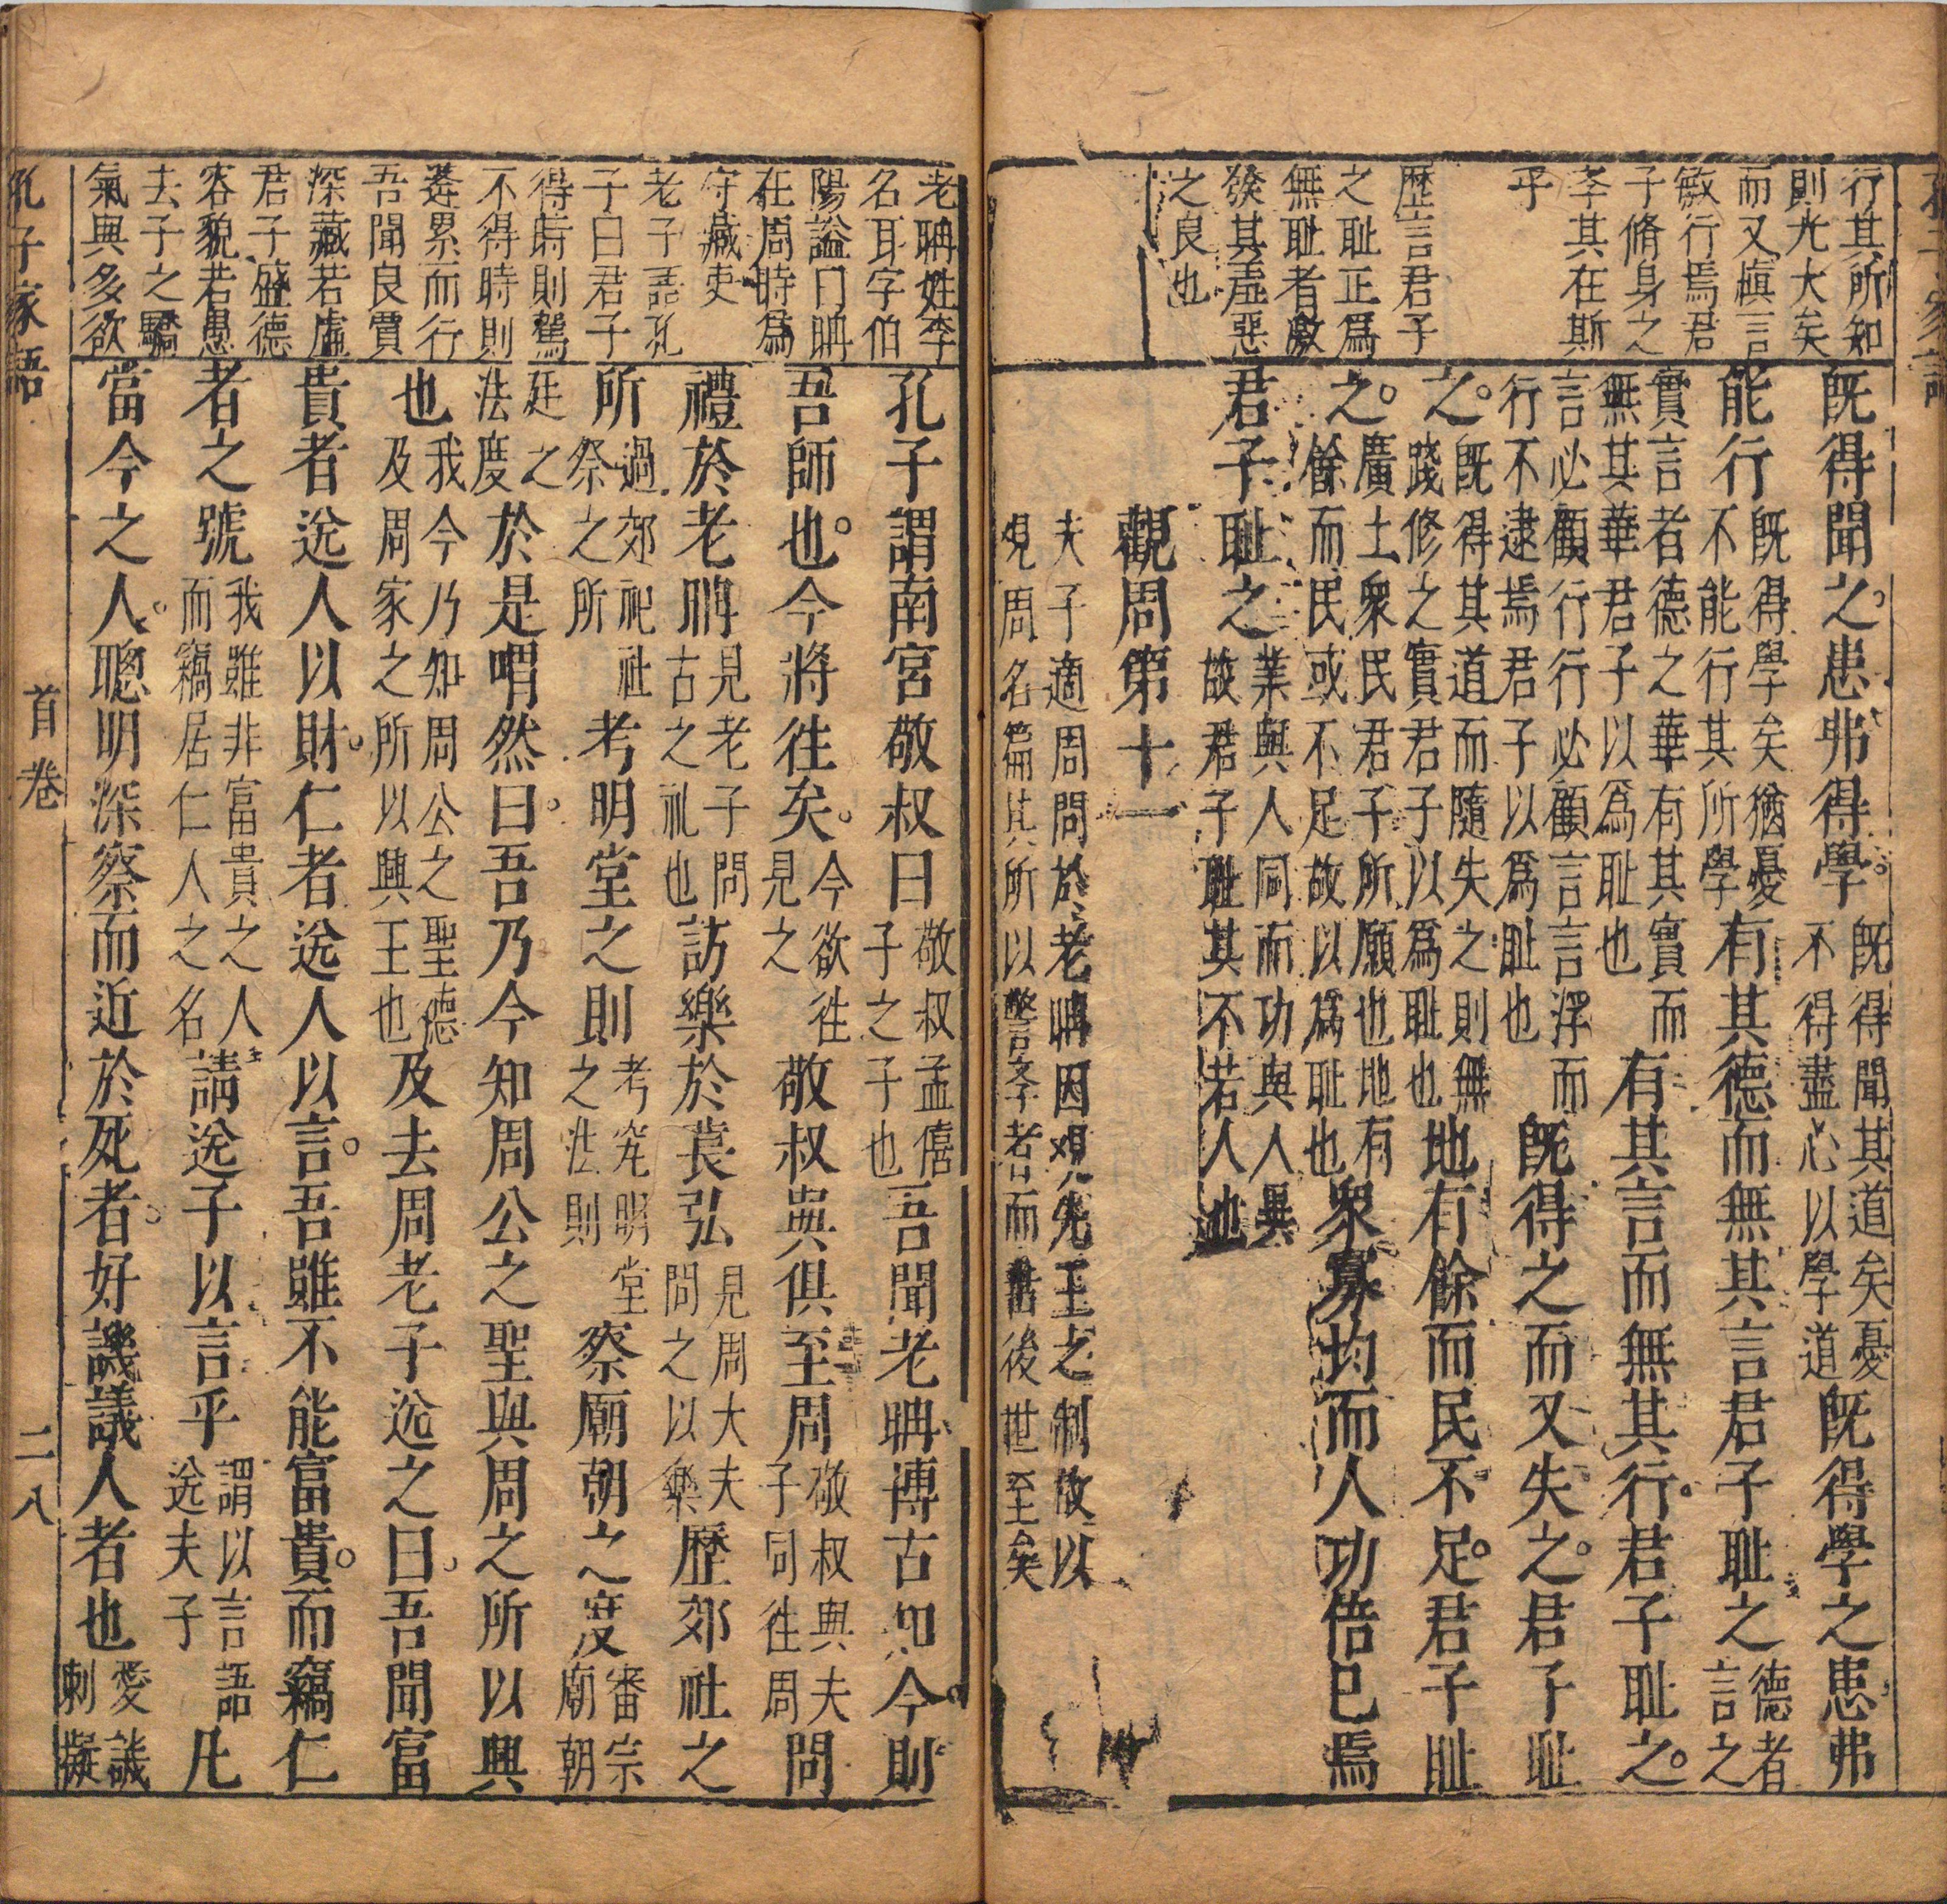 行其所知
則光大矣
而又慎言
敏行焉君
子脩身之
斈其在斯
乎
歷言君子
之耻正爲
無耻者激
發其羞惡
之良也
既得聞之患弗得學既得聞其道矣憂不得盡心以學道既得學之患弗
能行既得學矣猶憂不能行其所學有其德而無其言君子耻之德者言之
實言者德之華有其實而無其華君子以爲耻也有其言而無其行君子耻之
言必顧行行必顧言言浮而行不逮焉君子以爲耻也既得之而又失之君子耻
之既得其道而隨失之則無踐修之實君子以爲耻也地有餘而民不足君子耻
之廣土衆民君子所願也地有餘而民或不足故以爲耻也衆寡均而人功倍已焉
君子耻之業與人同而功與人異故君子耻其不若人也
觀周第十一
夫子適周問於老聃因覌先王之制故以
覌周名篇其所以警斈者而後世至矣
老聃姓李
名耳字伯
陽謚曰聃
在周時爲
守藏吏
老子語孔
子曰君子
得時則駕
不得時則
蓬累而行
吾聞良賈
深藏若虛
君子盛德
容貌若愚
去子之驕
氣與多欲
孔子謂南宮敬叔曰敬叔孟僖子之子也吾聞老聃博古知今則
吾師也今將往矣今欲往見之敬叔與俱至周敬叔與夫子同往周問
禮於老聃見老子問古之礼也訪樂於萇弘見周大夫問之以樂歷郊社之
所過郊祀社祭之所考明堂之則考究明堂之法則察廟朝之度審宗廟朝
廷之法度於是喟然曰吾乃今知周公之聖與周之所以興
也我今乃知周公之聖德及周家之所以興王也及去周老子送之曰吾聞富
貴者送人以財仁者送人以言吾雖不能富貴而竊仁
者之號我雖非富貴之人而竊居仁人之名請送子以言乎謂以言語送夫子凡
當今之人聰明深察而近於死者好譏議人者也愛譏刺擬
孔子家語
首卷
二八